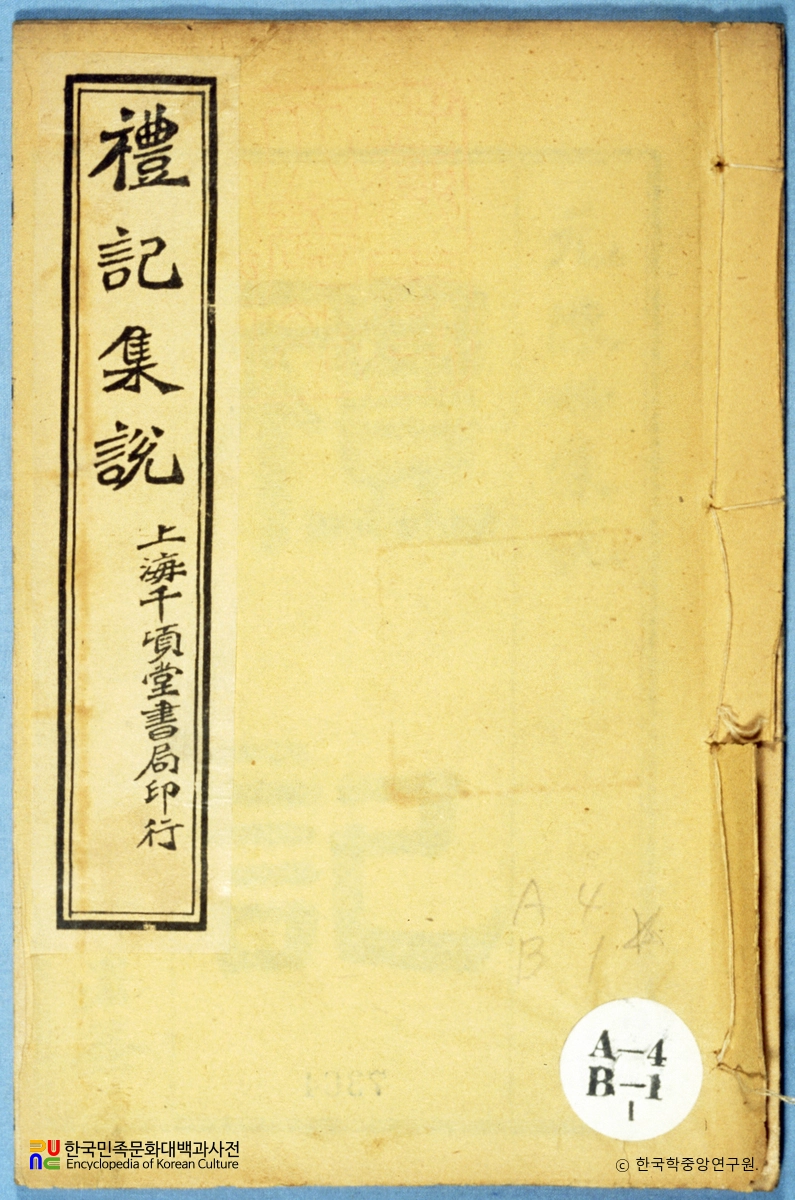 禮記集說
上海千頃堂書局印行
A 4
B 1
A-4
B-1
1
한국민족문화대백과사전
Encyclopedia of Korean Culture
© 한국학중앙연구원.